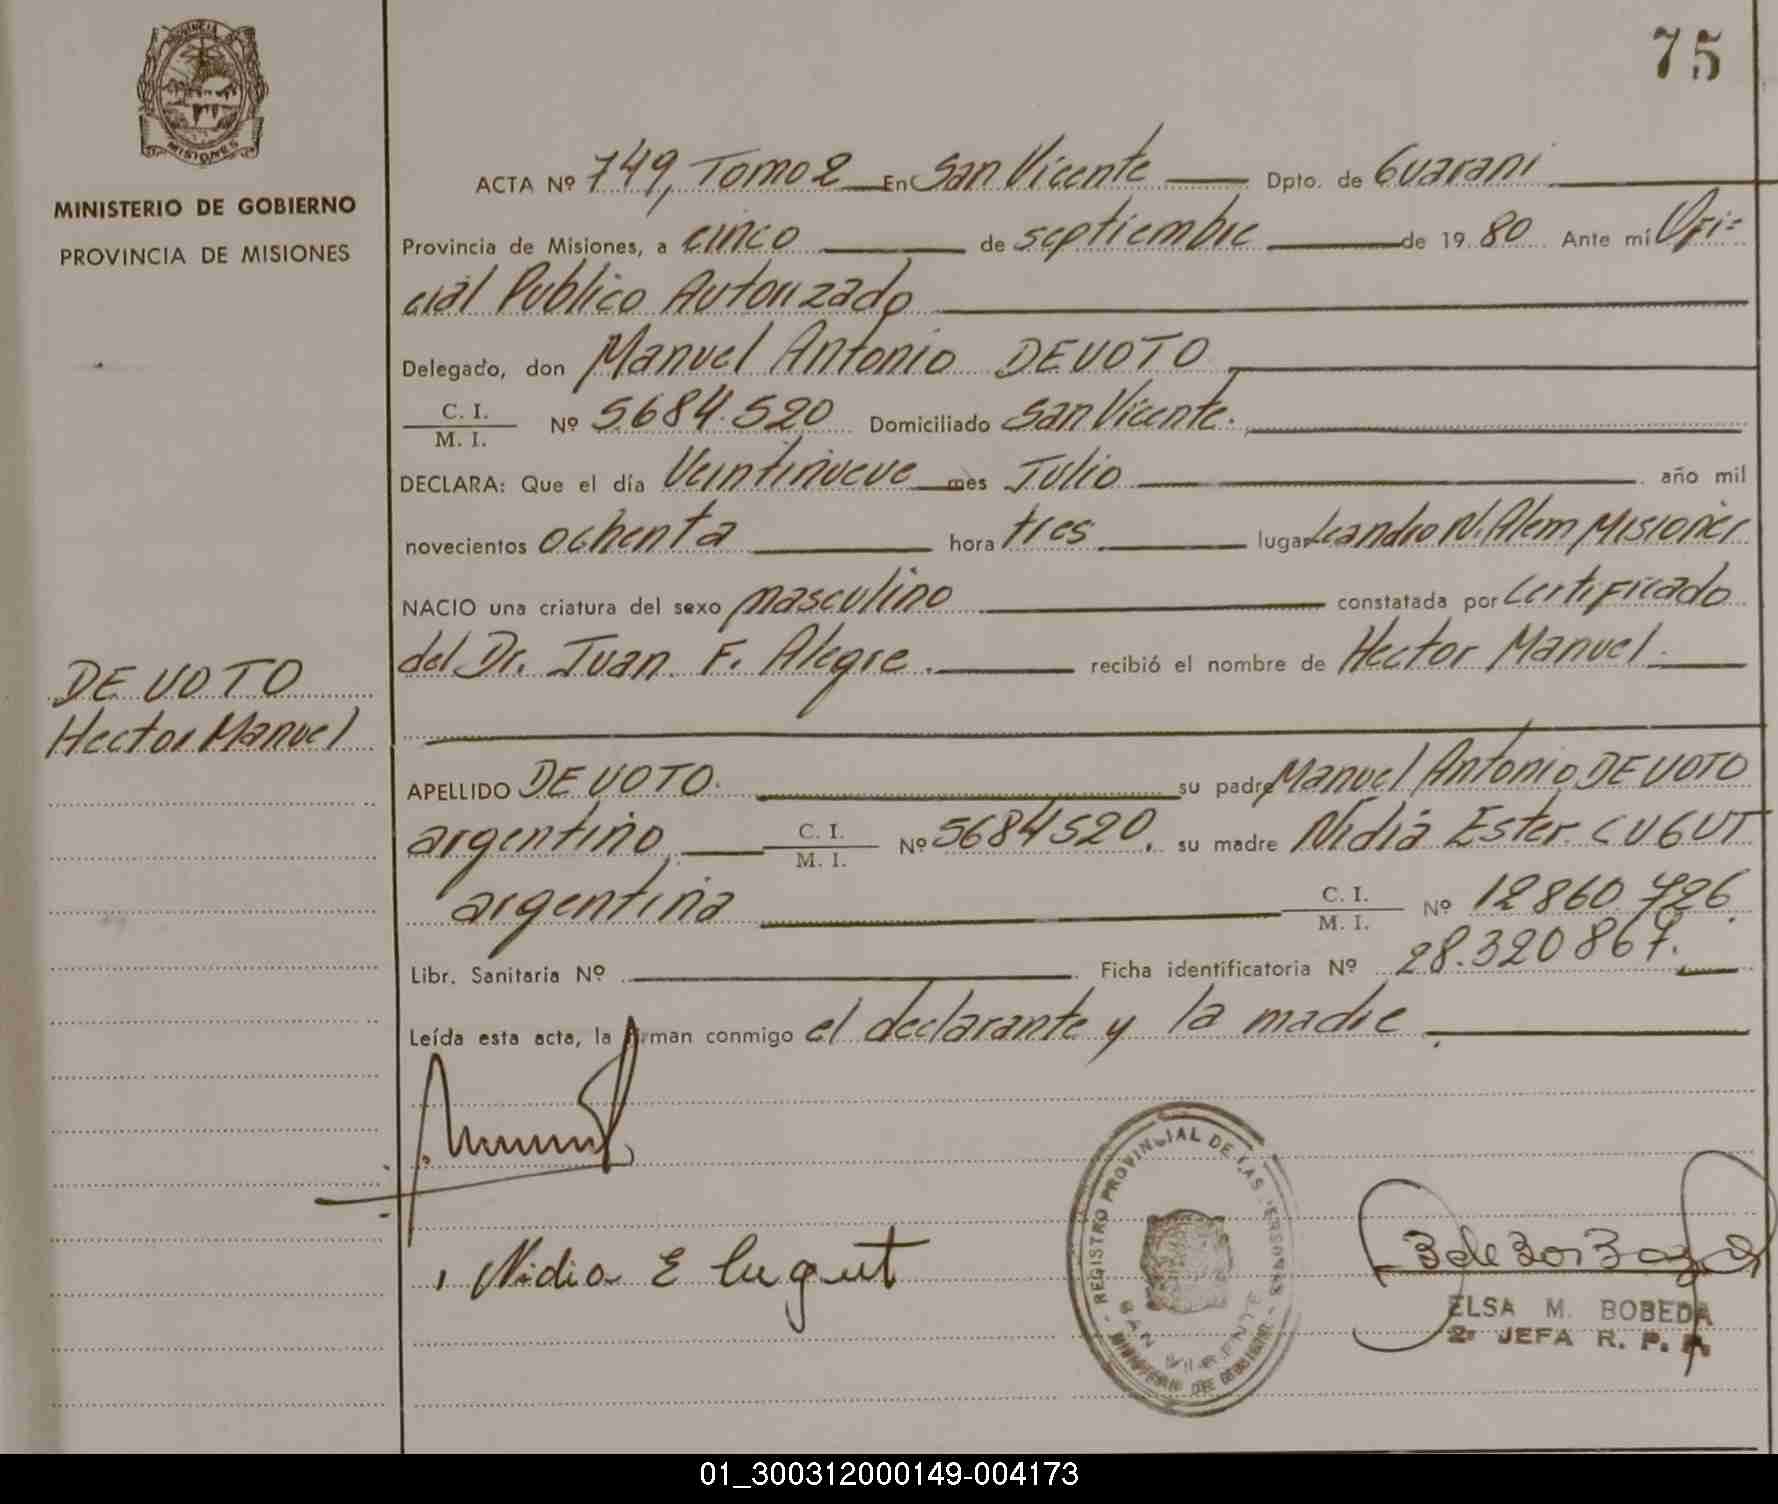 75
PROVINCIA DE
MISIONES
MINISTERIO DE GOBIERNO
PROVINCIA DE MISIONES
DEVOTO
Hector Manuel
ACTA Nº 749, Tomo 2 En San Vicente Dpto. de Guarani
Provincia de Misiones, a cinco de septiembre de 1980 Ante mí Ofi=
cial Publico Autorizado
Delegado, don Manuel Antonio DEVOTO
C. I.
M. I. Nº 5684.520 Domiciliado San Vicente.
DECLARA: Que el día Veintinueve mes Julio año mil
novecientos ochenta hora tres lugar Leandro N. Alem Misiones
NACIO una criatura del sexo masculino constatada por certificado
del Dr. Juan F. Alegre. recibió el nombre de Hector Manuel
APELLIDO DEVOTO. su padre Manuel Antonio DEVOTO
argentino, C. I. M. I. Nº 5684520. su madre Nidia Ester CUGUT
argentina C. I. M. I. Nº 12860.726.
Libr. Sanitaria Nº Ficha identificatoria Nº 28.320867.
Leída esta acta, la firman conmigo el declarante y la madre.
Nidia E Cugut
REGISTRO PROVINCIAL DE LAS PERSONAS
SAN VICENTE
MINISTERIO DE GOBIERNO
ELSA M. BOBEDA
2ª JEFA R. P. P.
01_300312000149-004173